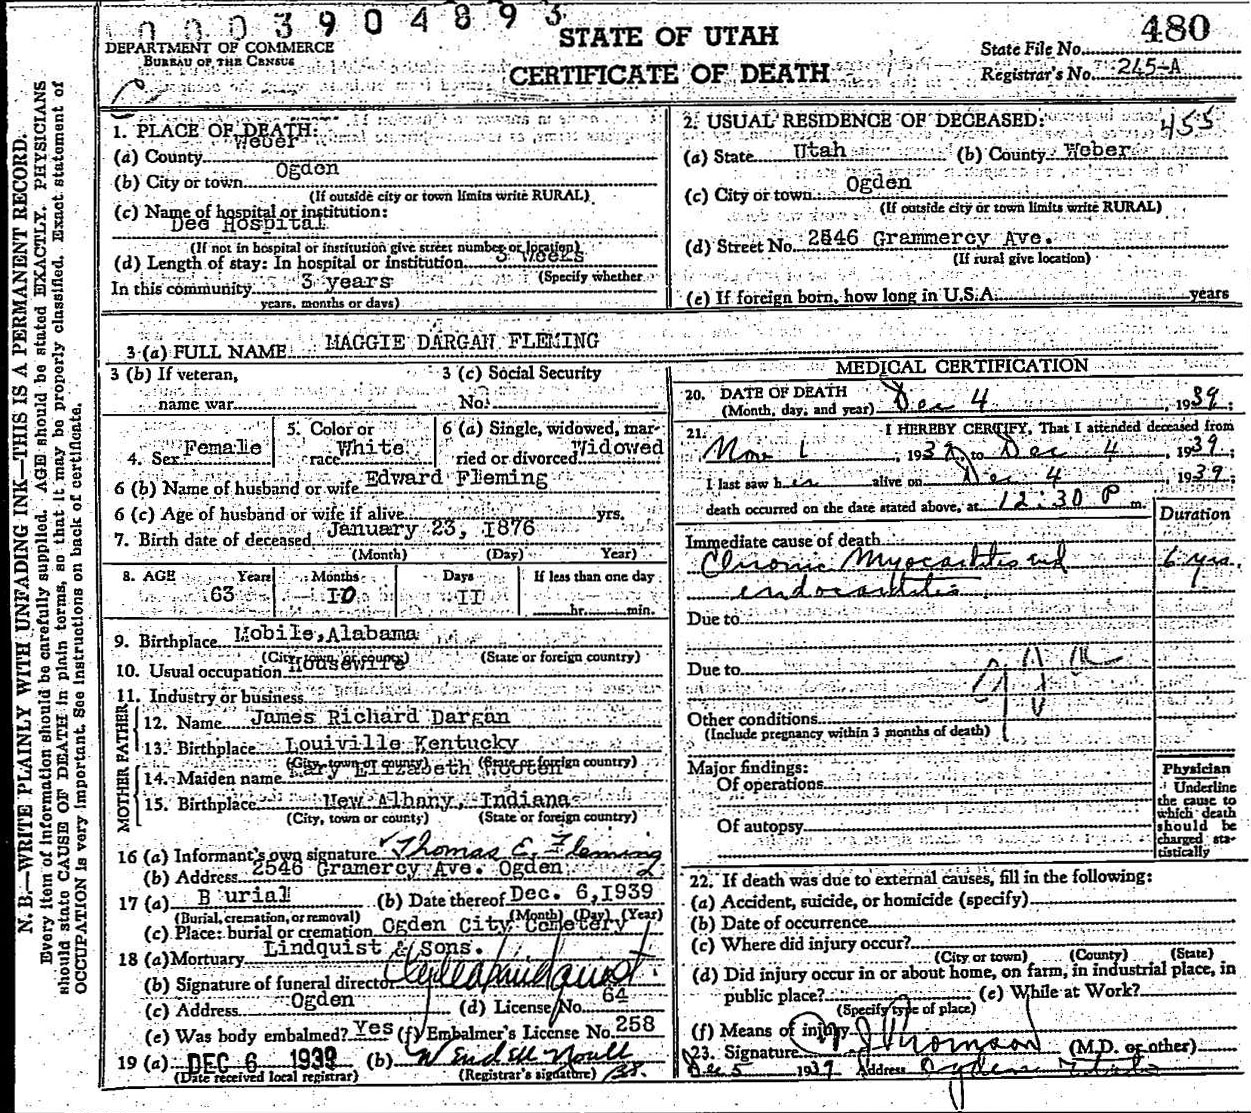 0003904893
DEPARTMENT OF COMMERCE
BUREAU OF THE CENSUS
STATE OF UTAH
CERTIFICATE OF DEATH
480
State File No.
Registrar's No. 245-A
N. B.—WRITE PLAINLY WITH UNFADING INK—THIS IS A PERMANENT RECORD.
Every item of information should be carefully supplied. AGE should be stated EXACTLY. PHYSICIANS
should state CAUSE OF DEATH in plain terms, so that it may be properly classified. Exact statement of
OCCUPATION is very important. See instructions on back of certificate.
1. PLACE OF DEATH:
(a) County Weber
(b) City or town Ogden
(If outside city or town limits write RURAL)
(c) Name of hospital or institution:
Dee Hospital
(If not in hospital or institution give street number or location)
(d) Length of stay: In hospital or institution 3 weeks
(Specify whether
In this community 3 years
years, months or days)
2. USUAL RESIDENCE OF DECEASED: 455
(a) State Utah (b) County Weber
(c) City or town Ogden
(If outside city or town limits write RURAL)
(d) Street No. 2546 Grammercy Ave.
(If rural give location)
(e) If foreign born, how long in U.S.A. years
3 (a) FULL NAME MAGGIE DARGAN FLEMING
3 (b) If veteran,
name war
3 (c) Social Security
No.
4. Sex Female
5. Color or
race White
6 (a) Single, widowed, mar-
ried or divorced Widowed
6 (b) Name of husband or wife Edward Fleming
6 (c) Age of husband or wife if alive yrs.
7. Birth date of deceased January 23, 1876
(Month) (Day) Year)
8. AGE Years Months Days If less than one day
63 10 11 hr. min.
9. Birthplace Mobile, Alabama
(City, town or county) (State or foreign country)
10. Usual occupation Housewife
11. Industry or business
FATHER
12. Name James Richard Dargan
13. Birthplace Louiville Kentucky
(City, town or county) (State or foreign country)
MOTHER
14. Maiden name Mary Elizabeth Wooten
15. Birthplace New Albany, Indiana
(City, town or county) (State or foreign country)
16 (a) Informant's own signature Thomas E. Fleming
(b) Address 2546 Gramercy Ave. Ogden 2
17 (a) Burial (b) Date thereof Dec. 6,1939
(Burial, cremation, or removal) (Month) (Day) (Year)
(c) Place: burial or cremation Ogden City Cemetery
18 (a) Mortuary Lindquist & Sons.
(b) Signature of funeral director
(c) Address Ogden (d) License No. 64
(e) Was body embalmed? Yes (f) Embalmer's License No. 258
19 (a) DEC 6 1939 (b) Wendell Noall
(Date received local registrar) (Registrar's signature)
MEDICAL CERTIFICATION
20. DATE OF DEATH
(Month, day, and year) Dec 4, 1939;
21. I HEREBY CERTIFY, That I attended deceased from
Nov 1, 1939, to Dec 4, 1939;
I last saw her alive on Dec 4, 1939;
death occurred on the date stated above, at 12:30 P m.
Duration
Immediate cause of death
Chronic Myocarditis and 6 yrs.
endocarditis
Due to
Due to
Other conditions
(Include pregnancy within 3 months of death)
Major findings:
Of operations
Of autopsy
Physician
Underline
the cause to
which death
should be
charged sta-
tistically
22. If death was due to external causes, fill in the following:
(a) Accident, suicide, or homicide (specify)
(b) Date of occurrence
(c) Where did injury occur?
(City or town) (County) (State)
(d) Did injury occur in or about home, on farm, in industrial place, in
public place? (e) While at Work?
(Specify type of place)
(f) Means of injury
23. Signature Thomson (M.D. or other)
Dec 5 1939 Address Ogden Utah